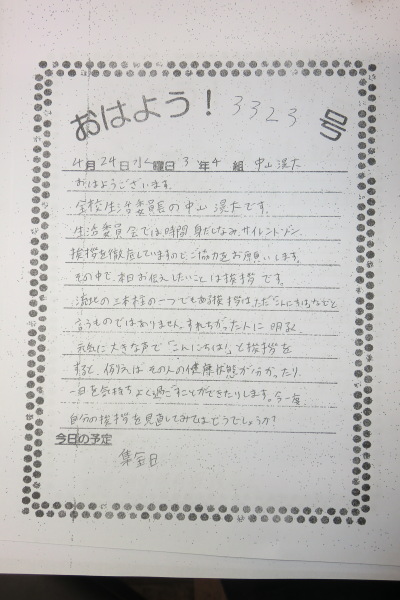 おはよう! 3323 号
4月 24日 水曜日 3年 4組 中山 滉大
おはようございます。
全校生活委員長の中山 滉大です。
生活委員会では時間、身だしなみ、サイレントゾーン、
挨拶を徹底していますのでご協力をお願いします。
その中で、本日お伝えしたいことは挨拶です。
北の三本柱の一つでもある挨拶は、ただ「こんにちは」などと
言うものではありません。すれちがった人に明るく
元気に大きな声で「こんにちは!」と挨拶を
すると、例えば その人の健康状態が分かったり
一日を気持ちよく過ごすことができたりします。今一度
自分の挨拶を見直してみてはどうでしょうか?
今日の予定
集会日